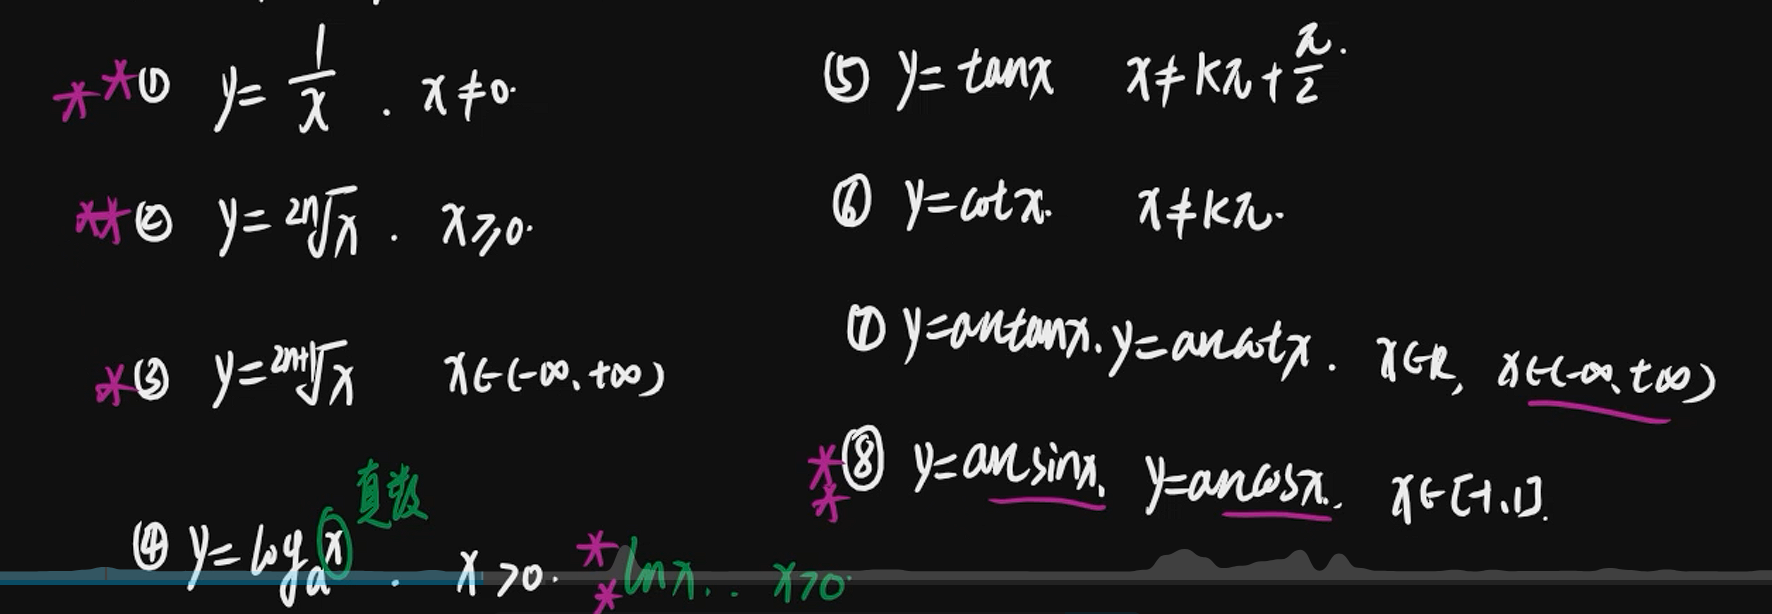 ** ① y = 1/x . x ≠ 0.
** ② y = ²ⁿ√x . x ≥ 0.
* ③ y = ²ⁿ⁺¹√x x ∈ (-∞, +∞)
④ y = logₐx . x > 0.
真数
** lnx. . x > 0.
⑤ y = tanx x ≠ kπ + π/2.
⑥ y = cotx. x ≠ kπ.
⑦ y = arctanx. y = arccotx. x ∈ R, x ∈ (-∞, +∞)
** ⑧ y = arcsinx. y = arccosx. x ∈ [-1, 1].